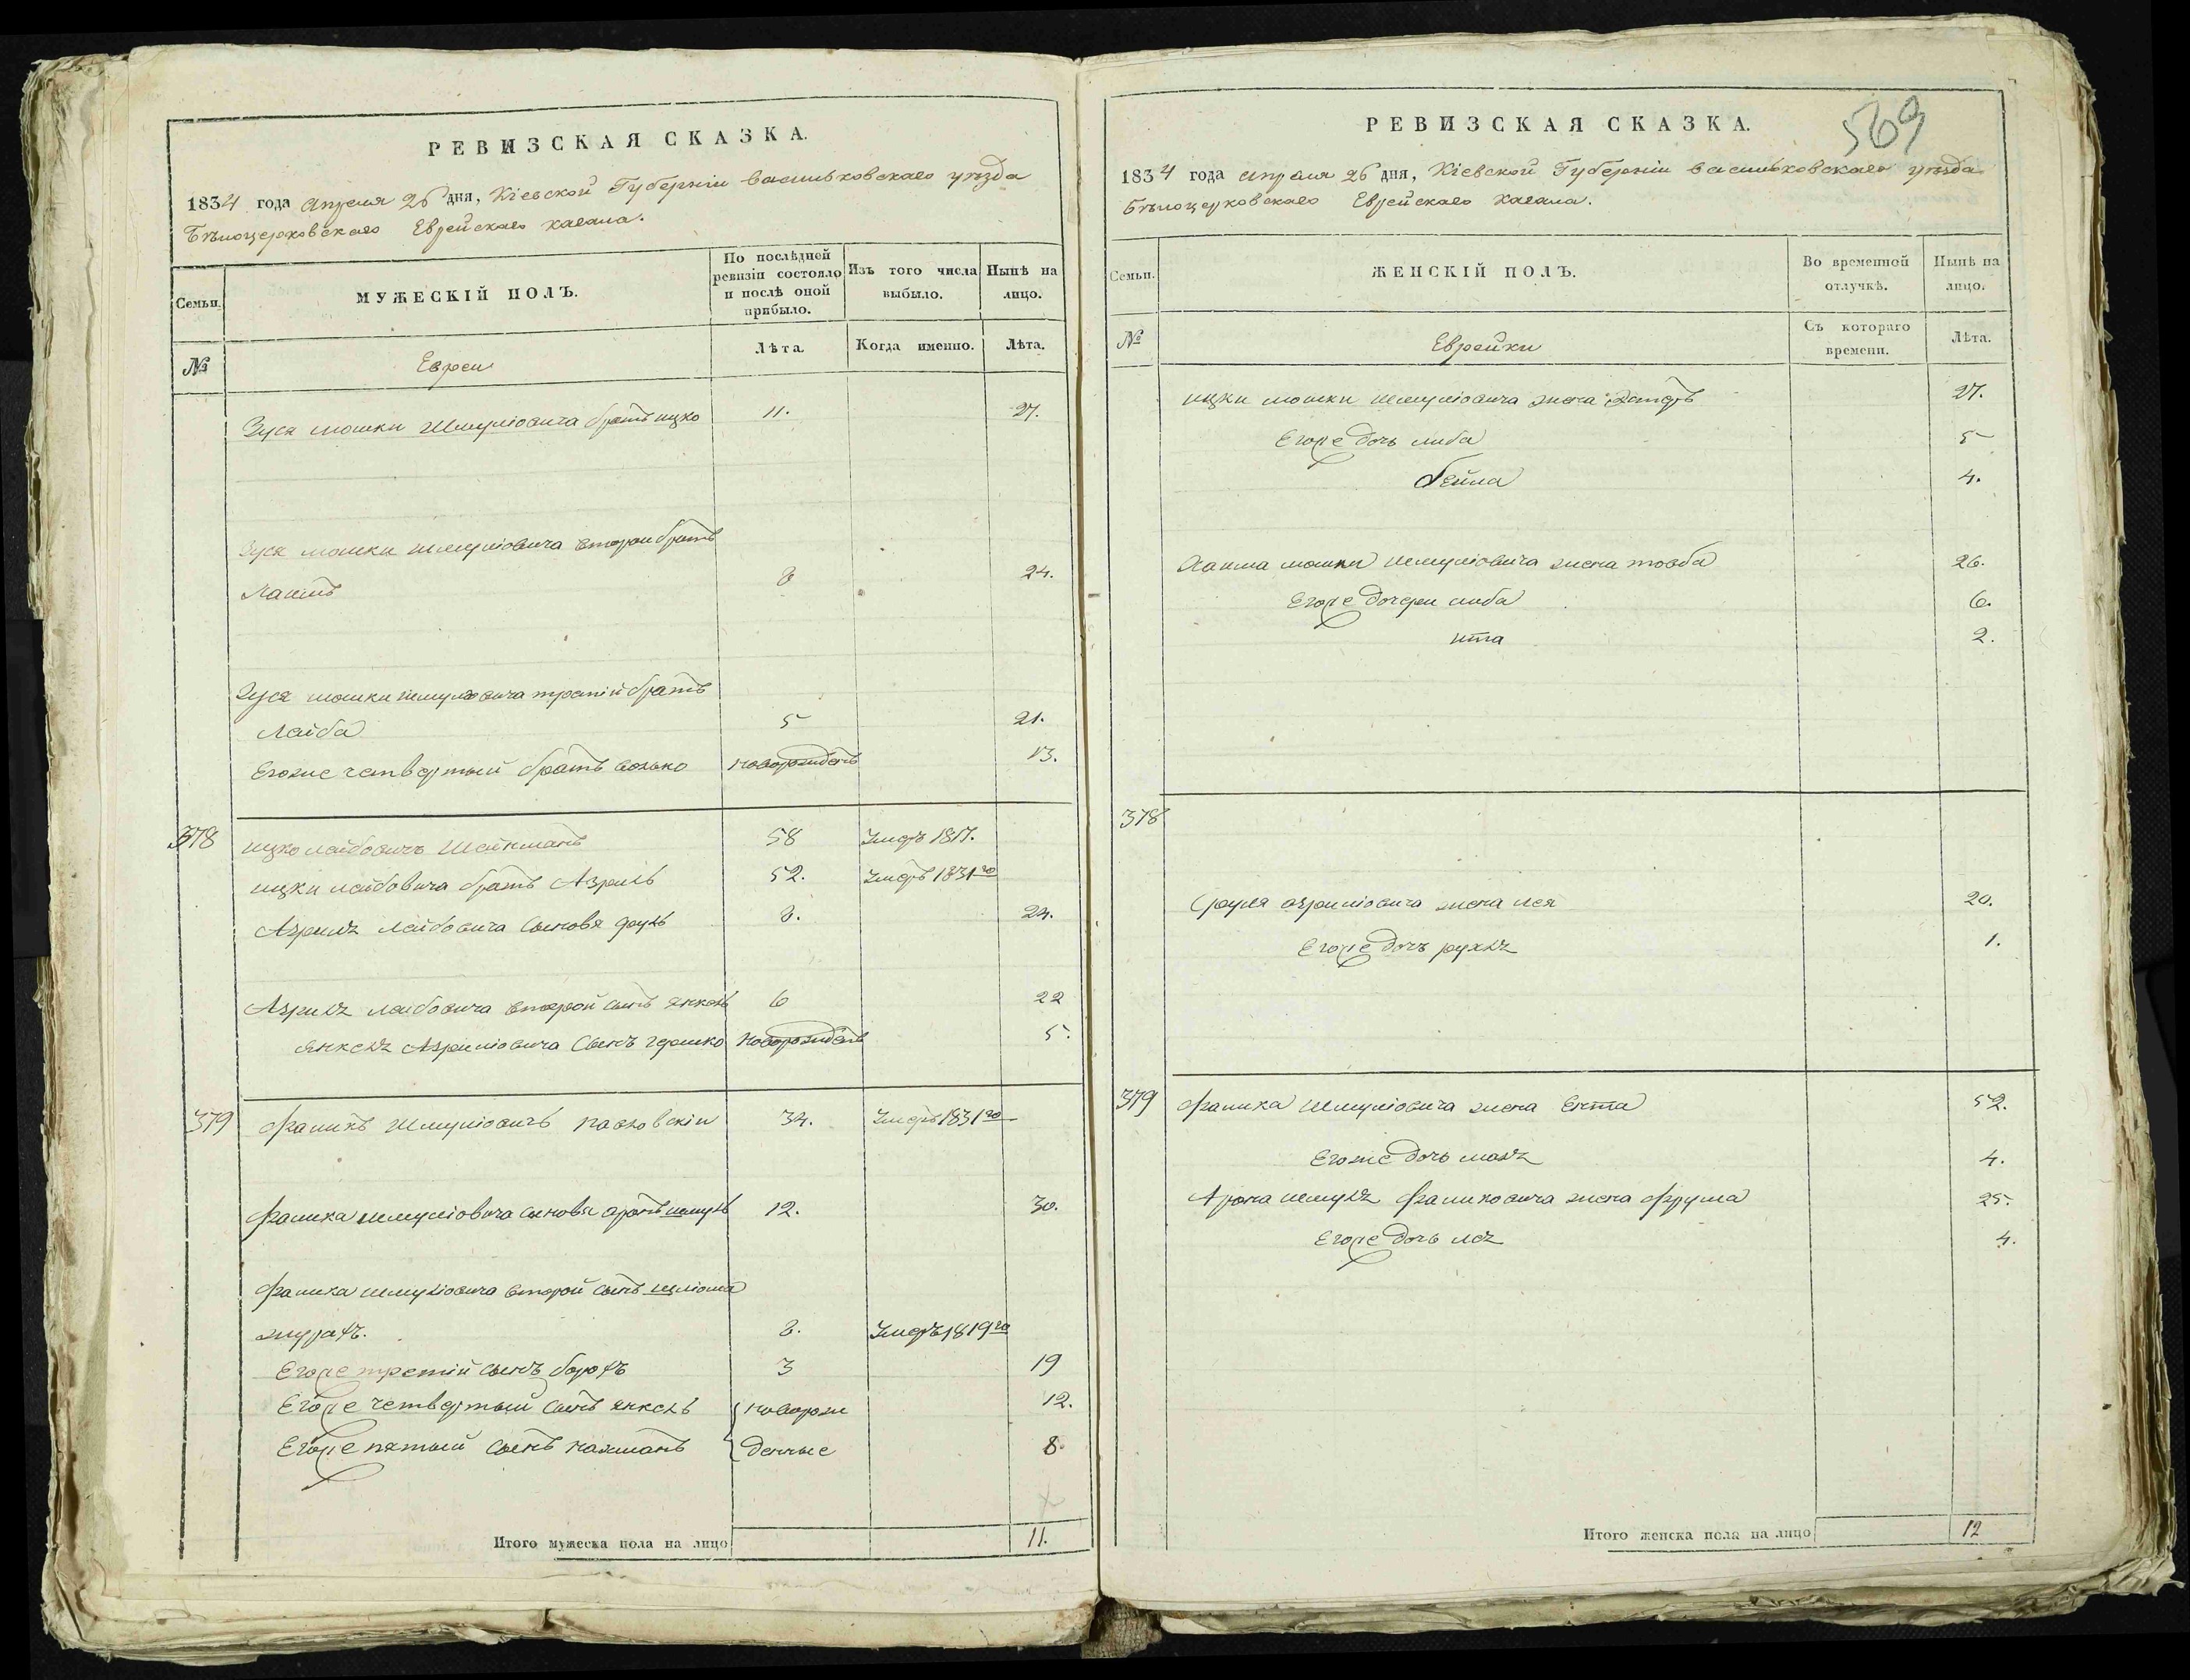 РЕВИЗСКАЯ СКАЗКА.
1834 года Апреля 26 дня, Кіевской Губерніи васильковскаго уѣзда
Бѣлоцерковскаго Еврейскаго кагала.
Семьи.
МУЖЕСКІЙ ПОЛЪ.
По послѣдней ревизіи состояло и послѣ оной прибыло.
Изъ того числа выбыло.
Нынѣ на лицо.
№
Евреи
Лѣта.
Когда именно.
Лѣта.
Зуся мошки Шмуліовича братъ ицко 11. 27.
Зуся мошки шмуліовича второй братъ
Хаимъ 8 24.
Зуся мошки шмуліовича третій братъ
Лейба 5 21.
Егоже четвертый братъ волько новорожденъ 13.
378 ицко лейбовичъ Шейнманъ 58 Умеръ 1817.
ицки лейбовича братъ Азриль 52. Умеръ 1831го
Азриля лейбовича Сыновья сруль 8. 24.
Азриля лейбовича второй сынъ янкель 6 22
янкеля Азриліовича Сынъ гершко Новорожденъ 5.
379 Фаликъ Шмуліовичъ 34. Умеръ 1831го
Фалика шмуліовича сыновья аронъ шмуль 12. 30.
Фалика шмуліовича второй сынъ шліома
8. Умеръ 1819го
Егоже третій сынъ борохъ 3 19
Егоже четвертый сынъ янкель новорож 12.
Егоже пятый сынъ нахманъ денные 8.
Итого мужеска пола на лицо 11.
569
РЕВИЗСКАЯ СКАЗКА.
1834 года апреля 26 дня, Кіевской Губерніи васильковскаго уѣзда
Бѣлоцерковскаго Еврейскаго Кагала.
Семьи.
ЖЕНСКІЙ ПОЛЪ.
Во временной отлучкѣ.
Нынѣ на лицо.
№
Еврейки
Съ котораго времени.
Лѣта.
ицки мошки шмуліовича жена Эстеръ 27.
Егоже дочь либа 5
бейла 4.
Хаима мошки шмуліовича жена товба 26.
Егоже дочери либа 6.
ита 2.
378
Сруля азриліовича жена лея 20.
Егоже дочь рухля 1.
379 Фалика Шмуліовича жена Ента 52.
Егоже дочь маля 4.
Арона шмуля Фаликовича жена Фрума 25.
Егоже дочь лея 4.
Итого женска пола на лицо 12